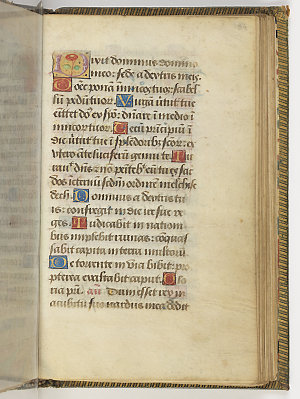 Dixit dominus domino
meo: sede a dextris meis.
Donec ponā inimicos tuos: scabel
lū pedū tuorū. Virgā v̄tutis tue
emittet dn̄s ex syon: dn̄are ī medio i
nimicorū tuorū. Tecū prīcipiū ī
die v̄tutis tue ī splēdoribꝰ scōrꝝ: ex
vtero ante luciferū genui te. Iu
rauit dn̄s: ⁊ nō penitebit eū tu es sac̄
dos ī eternū secūdū ordinē melchise
dech. Dominus a dextris tu
is: confregit in die ire sue re
ges. Iudicabit in nationi
bus implebit ruinas: cōquas
sabit capita in terra multorū.
De torrente in via bibit: pro
pterea exaltabit caput. Glo
ria pr̄i. an̄. Dum esset rex in
accubitu suo nardus mea dedit